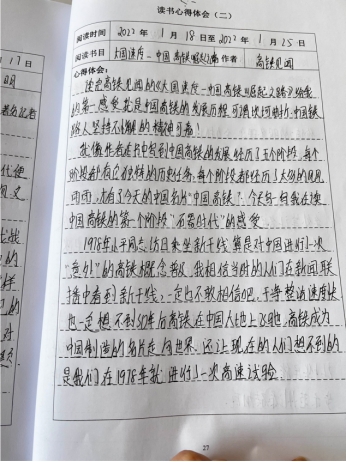 读书心得体会（二）
阅读时间 2022年1月18日至2022年1月25日
阅读书目 大国速度—中国高铁崛起之路 作者 高铁见闻
心得体会：
读完高铁见闻的《大国速度—中国高铁崛起之路》给我
的第一感觉就是中国高铁的发展历程可谓坎坷曲折，中国铁
路人坚持不懈的精神可嘉！
就像作者在书中写到中国高铁的发展经历了五个阶段，每个
阶段都有它的历史任务，每个阶段都经历了太多的风风
雨雨，才有了今天的中国名片"中国高铁"！今天写一写我在读
中国高铁的第一个阶段"石器时代"的感受
1978年小平同志访日乘坐新干线算是对中国进行了一次
"意外"的高铁概念普及，我相信当时的人们在新闻联
播中看到新干线，一定不敢相信吧，
也一定想不到30年后高铁在中国大地上飞驰，高铁成为
中国制造的名片走向世界，还让现在的人们想不到的
是我们在1978年就进行了一次高速试验。
27
17日